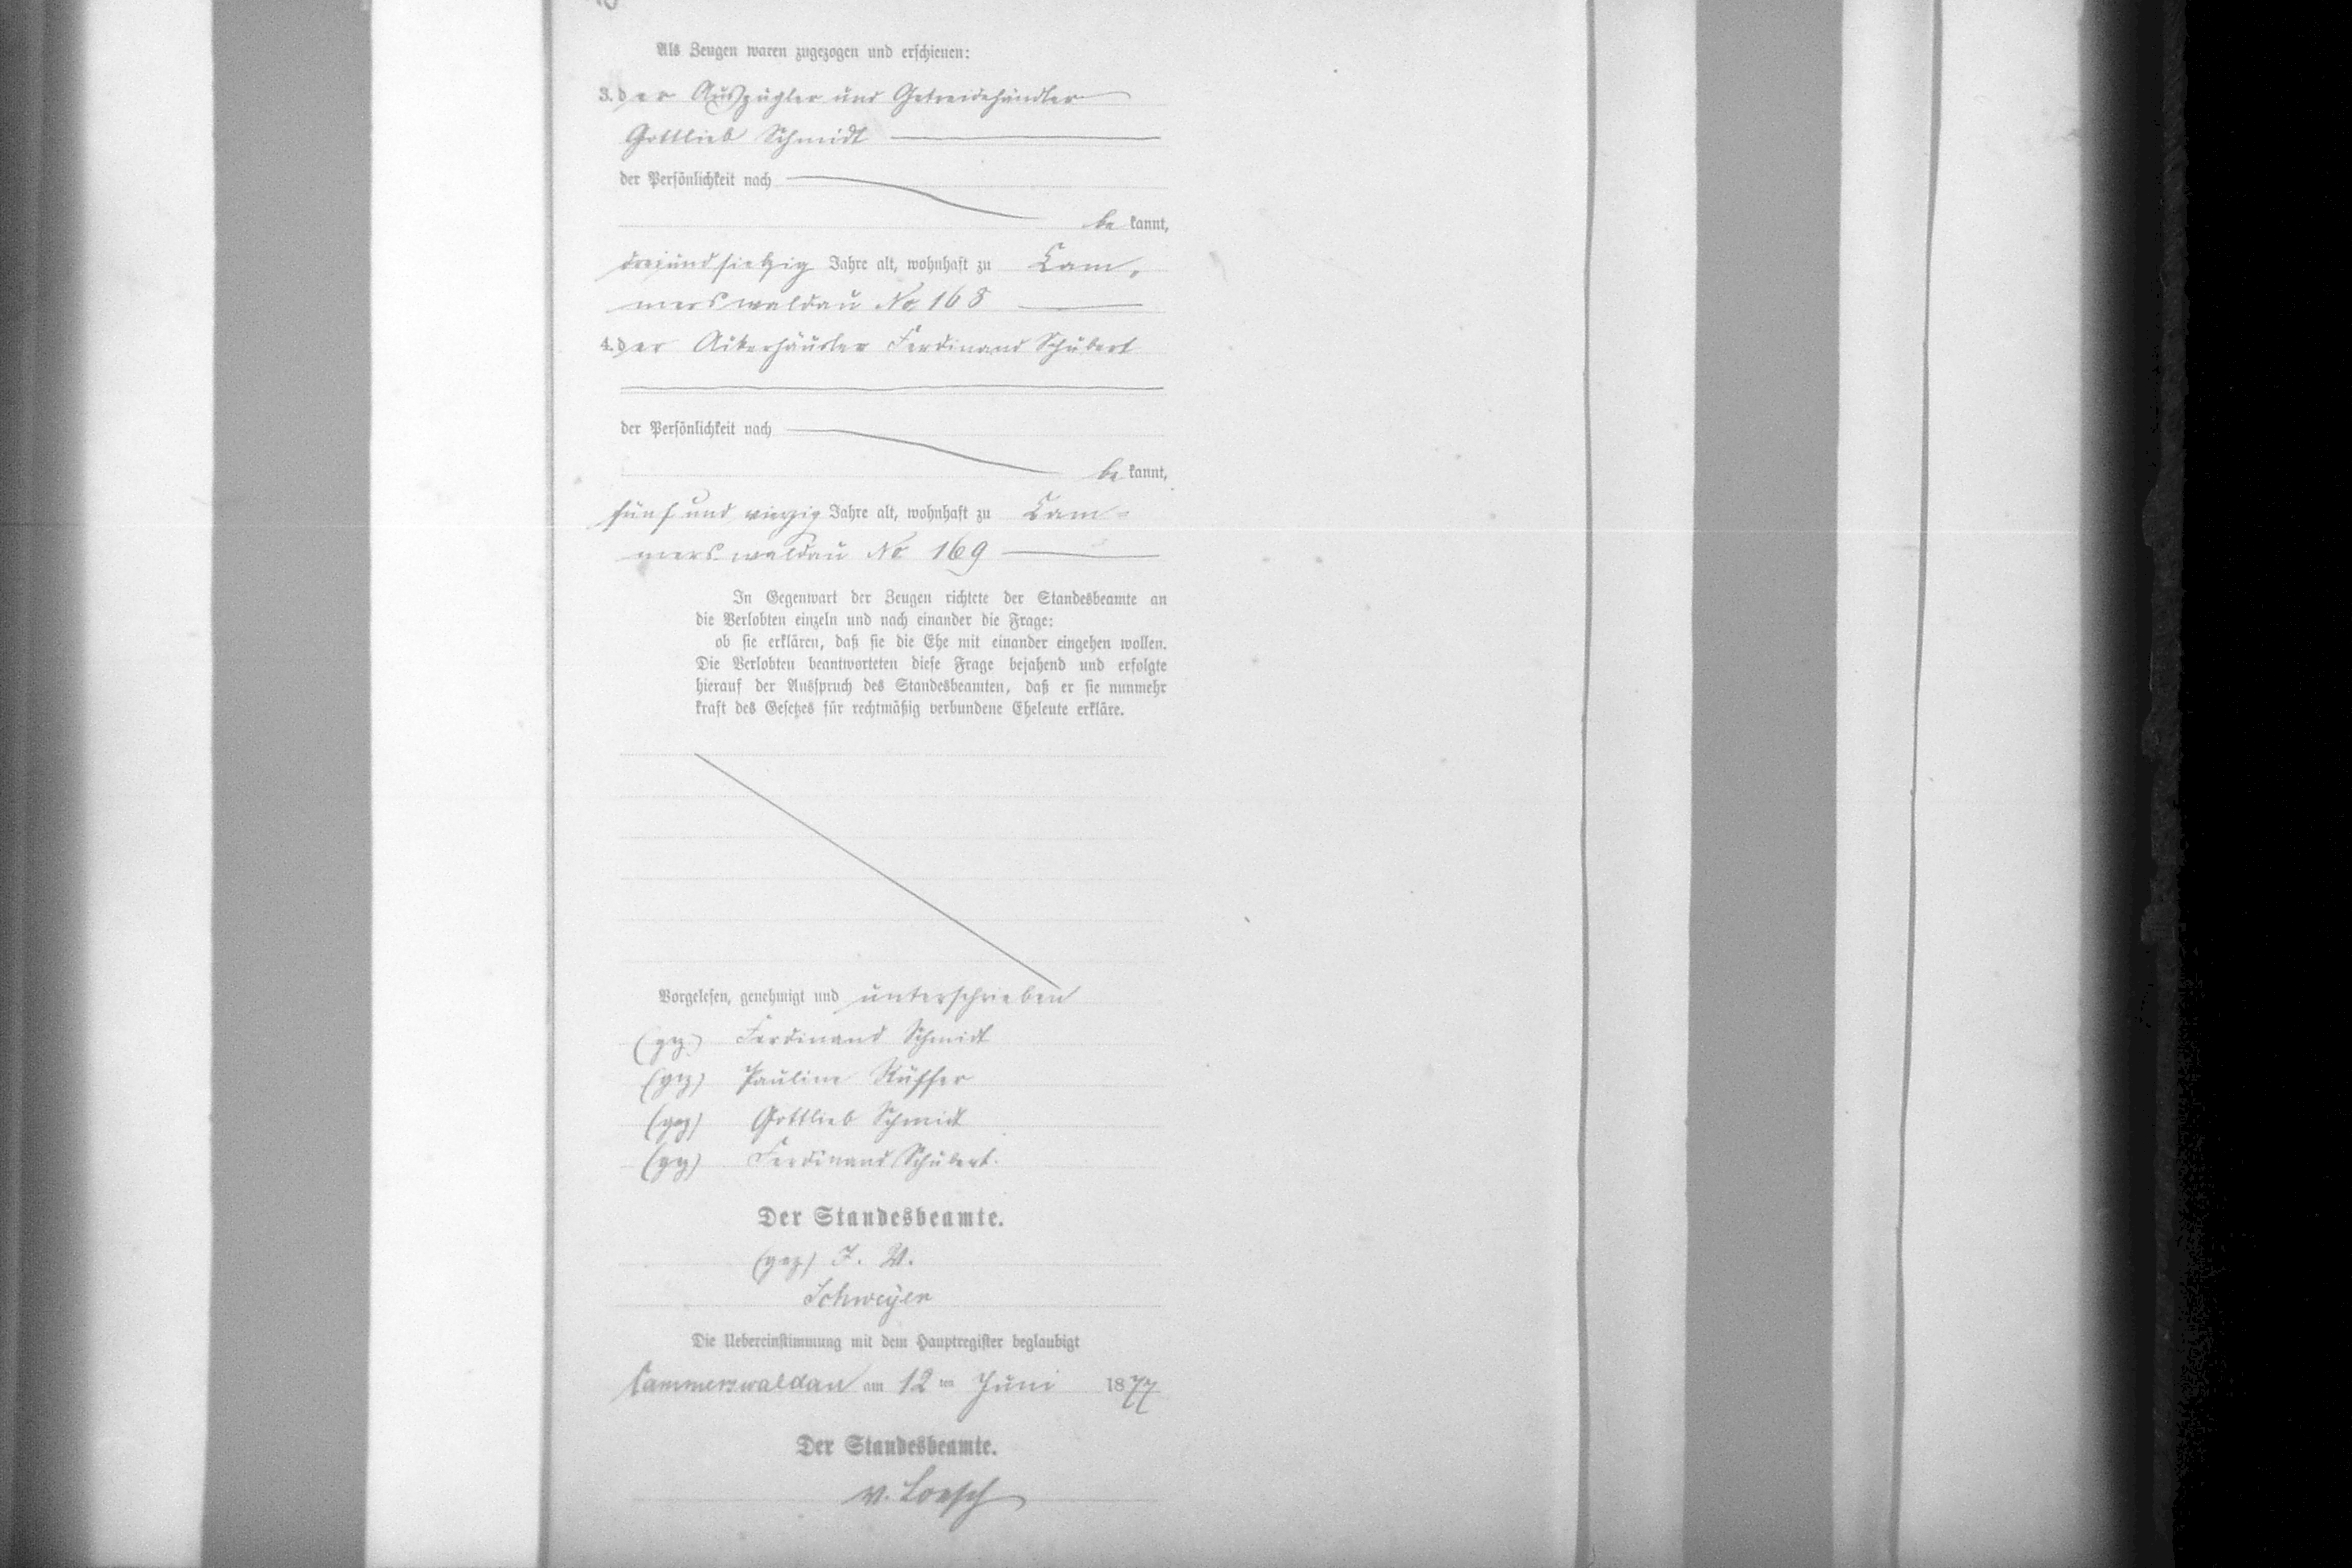 Als Zeugen waren zugezogen und erschienen:
3. der Auszügler und Getreidehändler
Gottlieb Schmidt
der Persönlichkeit nach
be kannt,
dreiundsiebzig Jahre alt, wohnhaft zu Cam-
merswaldau No 168
4. der Ackerhäusler Ferdinand Schubert
der Persönlichkeit nach
be kannt,
fünf und vierzig Jahre alt, wohnhaft zu Cam-
merswaldau No 169
In Gegenwart der Zeugen richtete der Standesbeamte an
die Verlobten einzeln und nach einander die Frage:
ob sie erklären, daß sie die Ehe mit einander eingehen wollen.
Die Verlobten beantworteten diese Frage bejahend und erfolgte
hierauf der Ausspruch des Standesbeamten, daß er sie nunmehr
kraft des Gesetzes für rechtmäßig verbundene Eheleute erkläre.
Vorgelesen, genehmigt und unterschrieben
(gez) Ferdinand Schmidt
(gez) Pauline Rüffer
(gez) Gottlieb Schmidt
(gez) Ferdinand Schubert.
Der Standesbeamte.
(gez) I. V.
Schweyer
Die Uebereinstimmung mit dem Hauptregister beglaubigt
Cammerswaldau am 12 ten Juni 1877
Der Standesbeamte.
v. Loesch